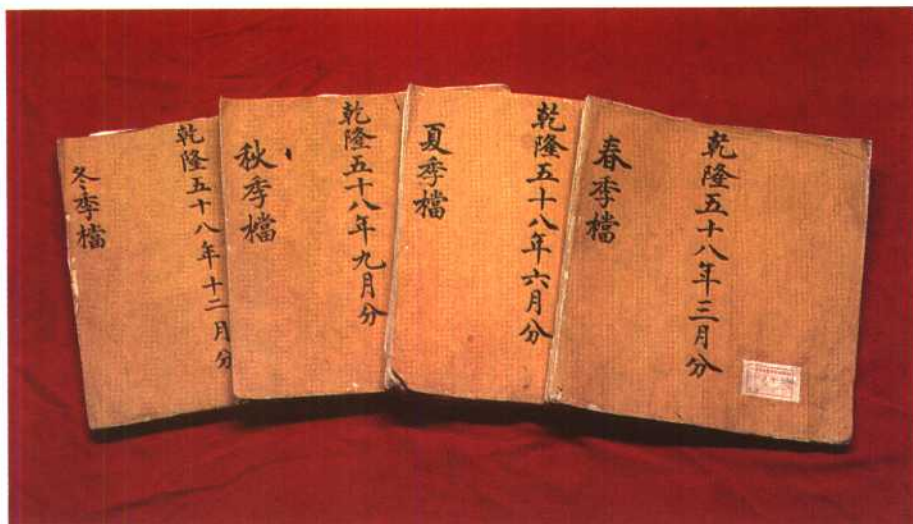 乾隆五十八年三月分
春季檔
乾隆五十八年六月分
夏季檔
乾隆五十八年九月分
秋季檔
乾隆五十八年十二月分
冬季檔